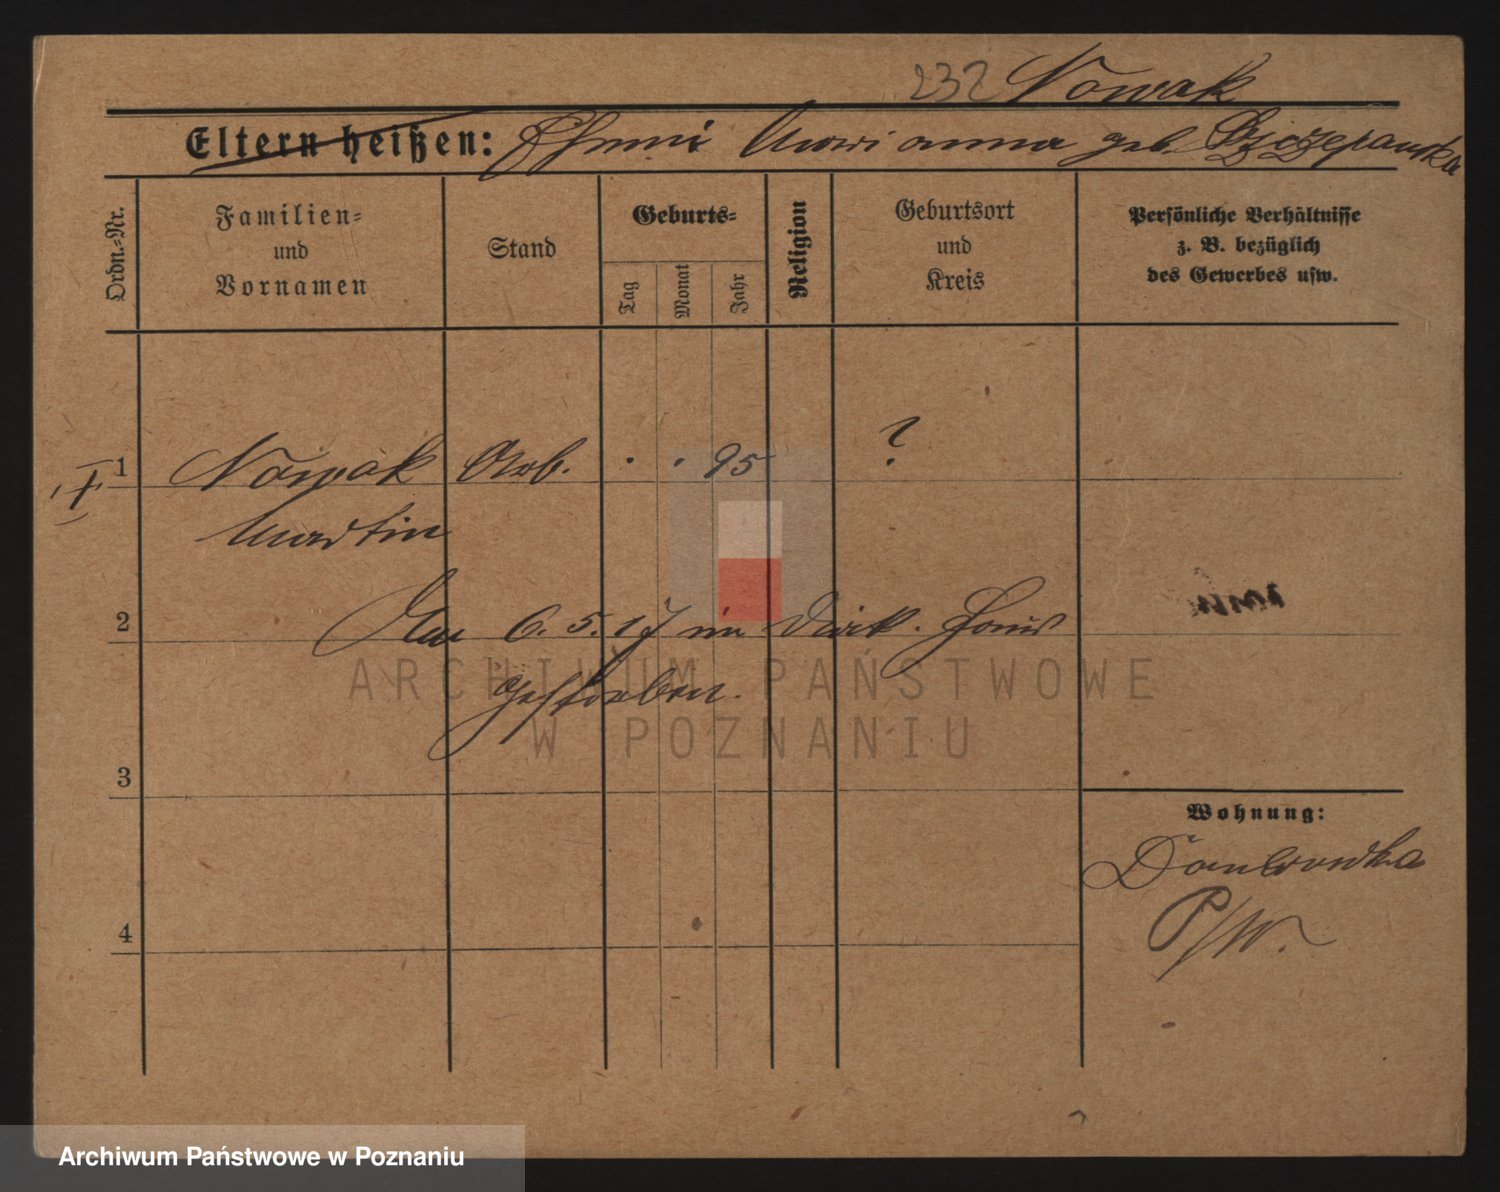 232 Nowak
Eltern heißen: Ehemi Marianna geb. Szczepanska
Ordn.=Nr.
Familien=
und
Vornamen
Stand
Geburts=
Tag
Monat
Jahr
Religion
Geburtsort
und
Kreis
Persönliche Verhältnisse
z. B. bezüglich
des Gewerbes usw.
1 Nowak Arb. . . 95 ?
Martin
2 Am 6. 5. 17 im
gestorben.
ARCHIWUM PAŃSTWOWE
W POZNANIU
3
Wohnung:
Dombrowka
4
P/W.
Archiwum Państwowe w Poznaniu